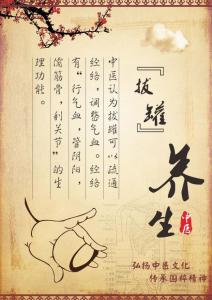 『拔罐』
养生
中医
中医认为拔罐可以疏通
经络，调整气血。经络
有“行气血，营阴阳，
濡筋骨，利关节”的生
理功能。
弘扬中医文化
传承国粹精神